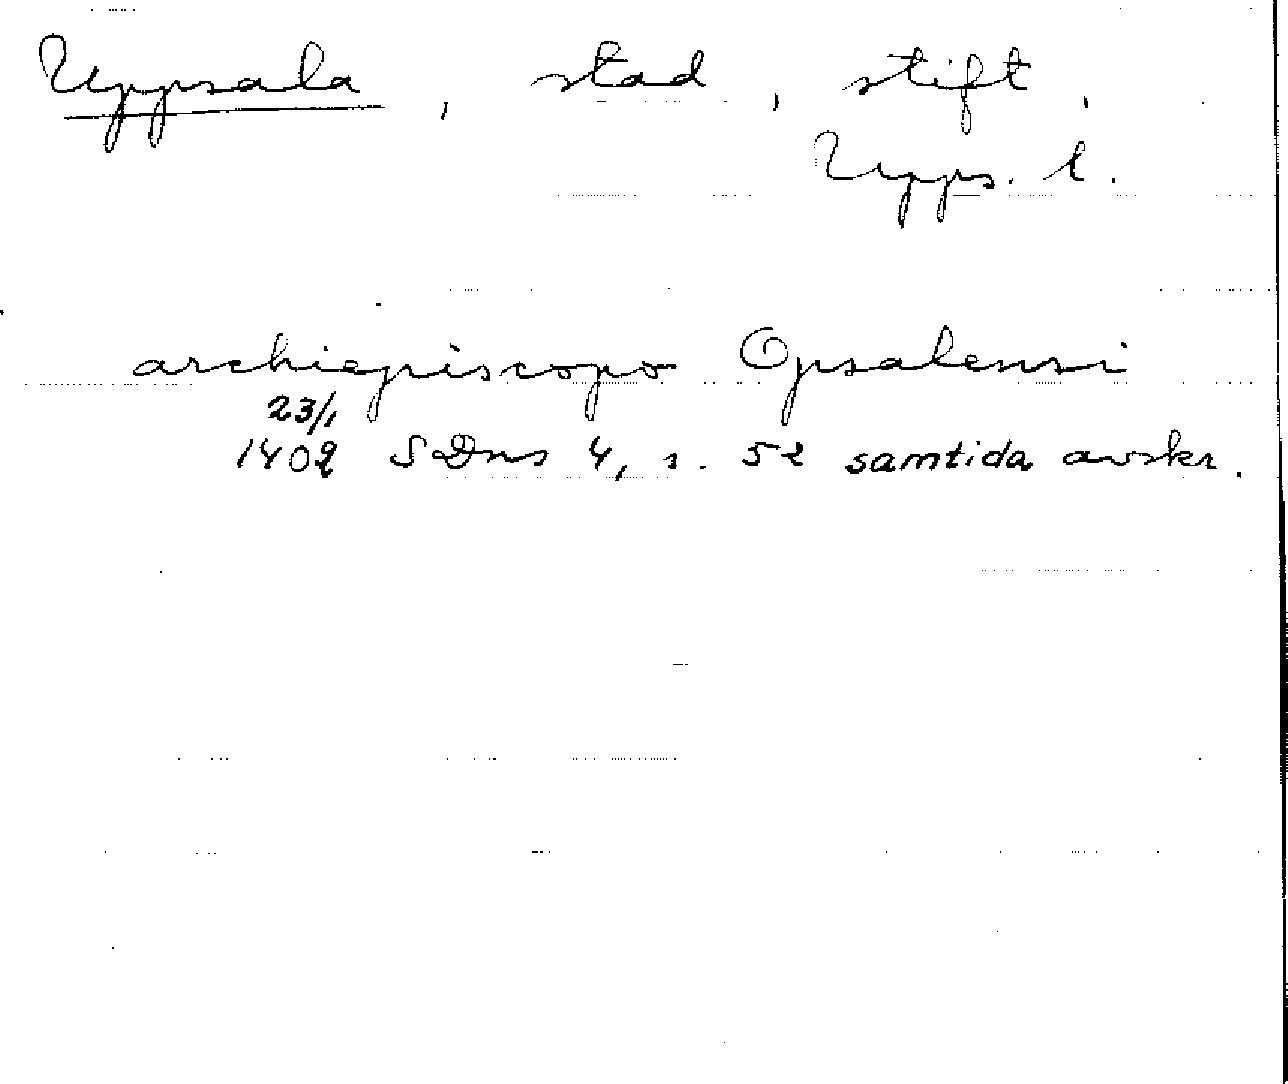 Uppsala, stad, stift,
Upps. l.
archiepiscopo Opsalensi
23/1
1402 SDns 4, s. 52 samtida avskr.